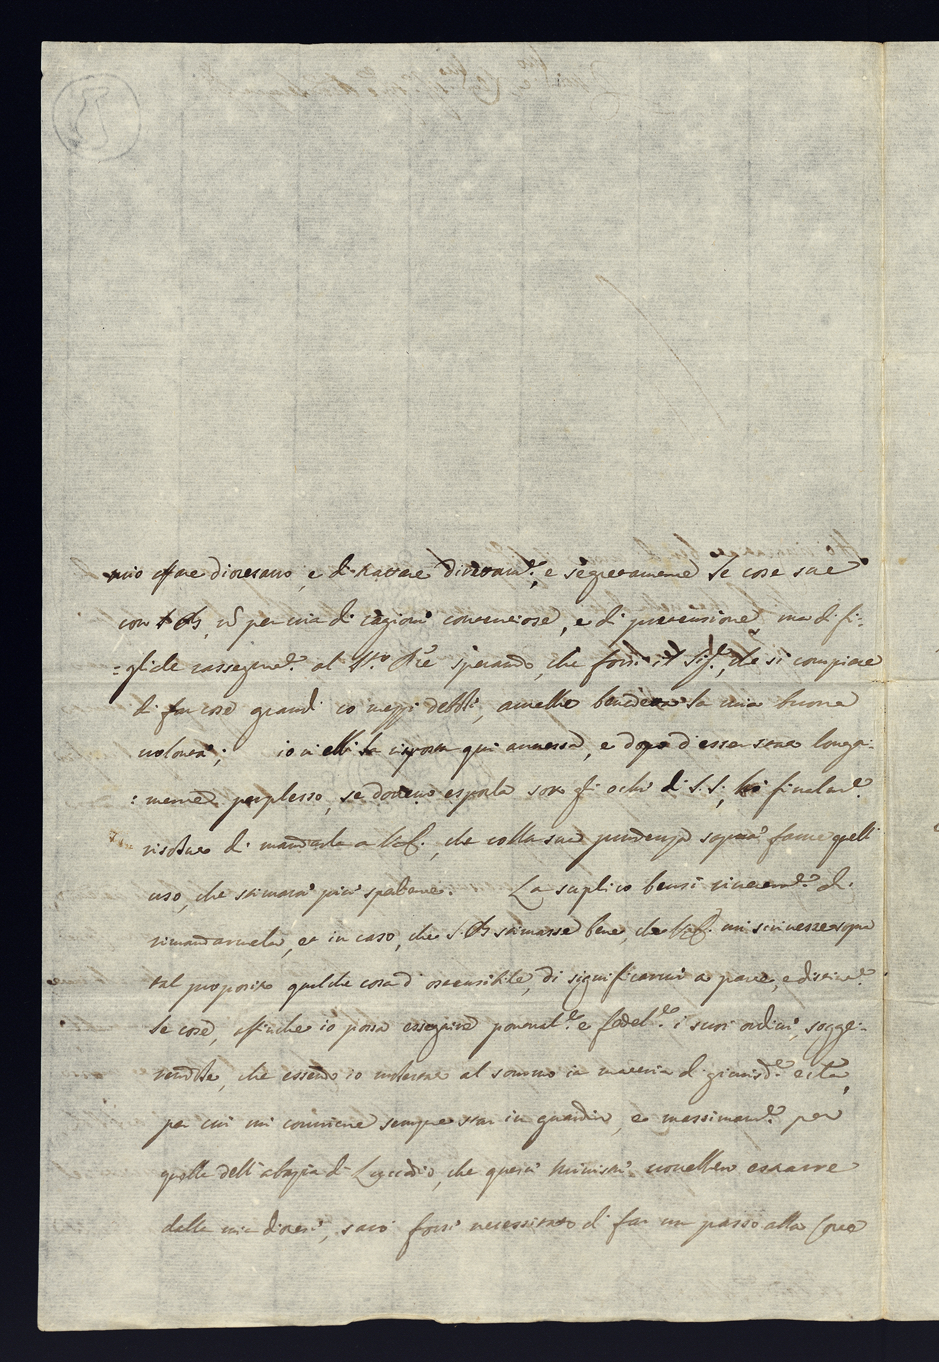 mio affare diocesano, e di trattare direttam.te, e segretamente le cose sue
con S. B., nè per via di ragioni contenziose, e di prevenzione, ma di fi-
=gliale rassegne al Sto Pre sperando, che forsi il Sig.e, che si compiace
di far cose grandi co mezzi deboli, avrebbe benedetta la mia buona
volontà; io n'ebbi la risposta qui annessa, e dopo d'esser stato longa-
:mente perplesso, se dovevo esporla sotto gli ochi di S. S., ho finalm.e
risoluto di mandarla a V. E., che colla sua prudenza saprà farne quell
uso, che stimarà più spediente. La suplico bensì riverentem.e di
rimandarmela, et in caso, che S. B. stimasse bene, che V. E. mi scrivesse sopra
tal proposito qualche cosa d'ostensibile, di significarmi a parte, e distintam.e
le cose, affinche io possa esseguire pontual.e e fedel.e i suoi ordini, sogge-
rendole, che essendo io molestato al sommo in materia di giurisd.e eccl.a,
per cui mi conviene sempre star in guardia, e massimam.e per
quella dell'abazia di Luccedio, che questi Ministri vorrebbero estrarre
dalla mia diocesi, sarò forsi necessitato di far un passo alla Corte